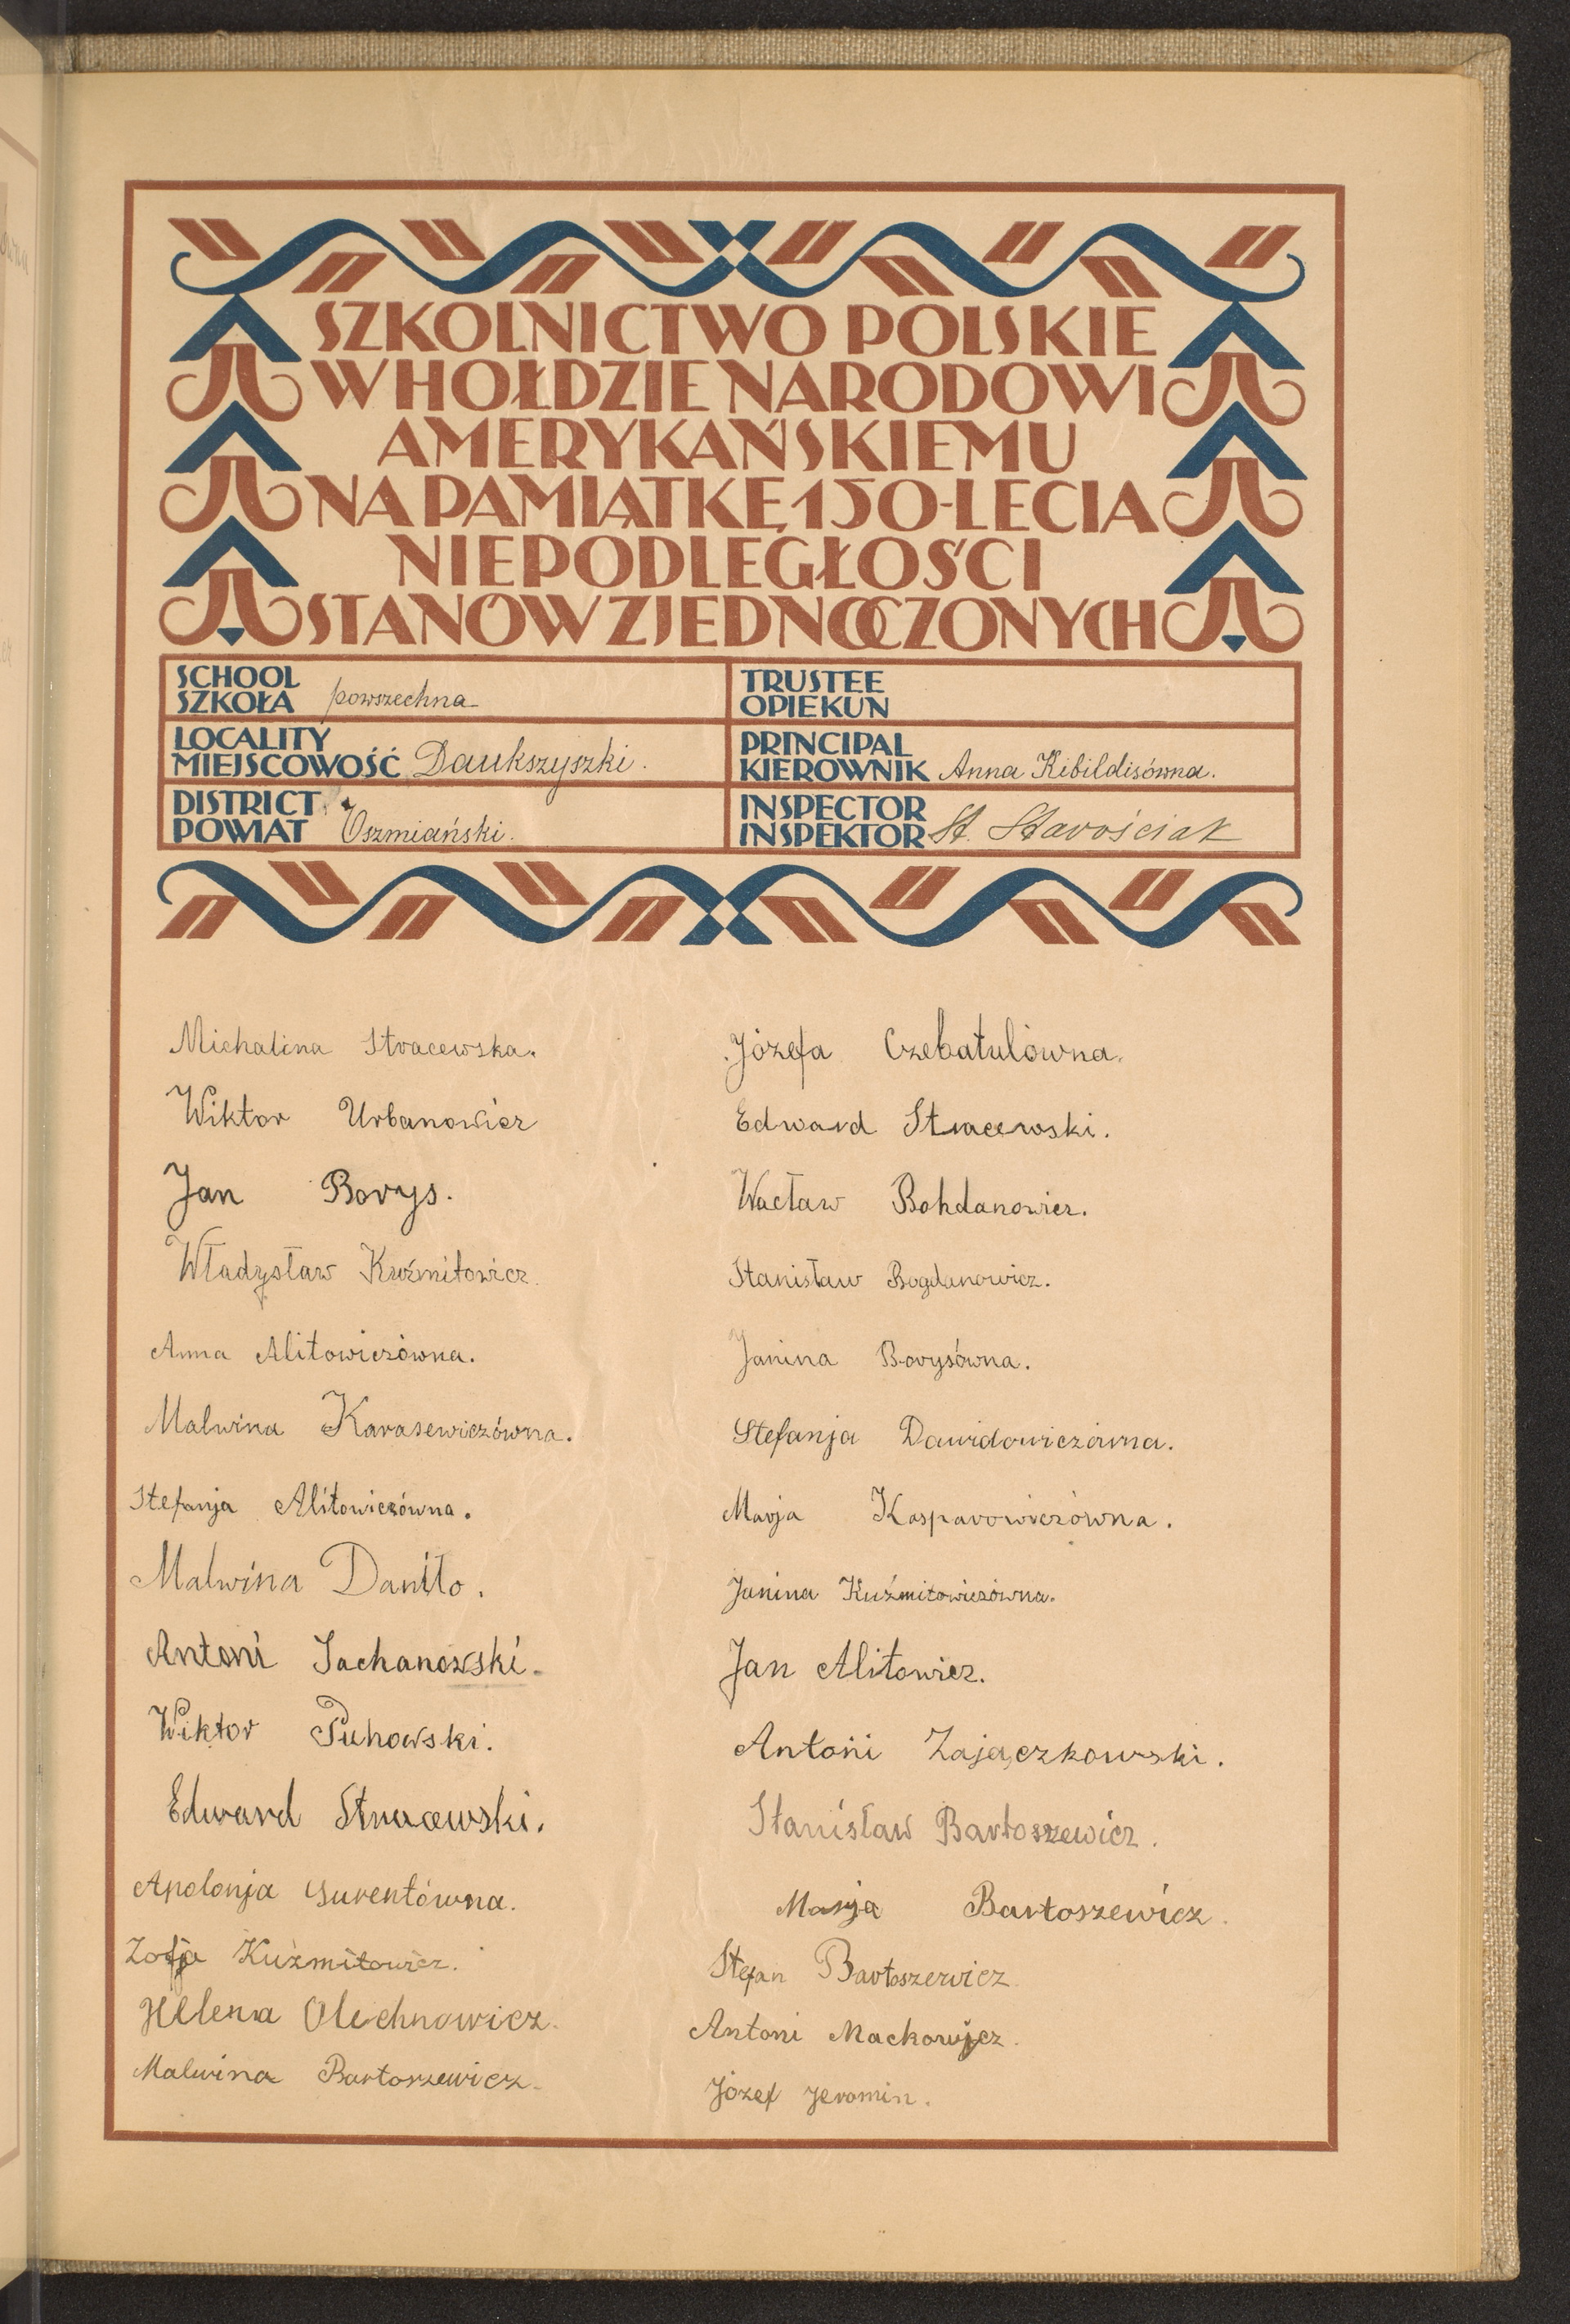 SZKOLNICTWO POLSKIE
W HOŁDZIE NARODOWI
AMERYKAŃSKIEMU
NA PAMIĄTKĘ 150-LECIA
NIEPODLEGŁOŚCI
STANÓW ZJEDNOCZONYCH
SCHOOL
SZKOŁA powszechna
TRUSTEE
OPIEKUN
LOCALITY
MIEJSCOWOŚĆ Daukszyszki.
PRINCIPAL
KIEROWNIK Anna Kibildisówna.
DISTRICT
POWIAT Oszmiański.
INSPECTOR
INSPEKTOR St. Starościak
Michalina Stracewska.
Wiktor Urbanowicz
Jan Borys.
Władysław Kuźmitowicz.
Anna Alitowiczówna.
Malwina Karasewiczówna.
Stefanja Alitowiczówna.
Malwina Daniło.
Antoni Jachanowski.
Wiktor Puhowski.
Edward Stracewski.
Apolonja Gurentówna.
Zofja Kuźmitowicz.
Helena Olechnowicz.
Malwina Bartoszewicz.
Józefa Czebatulówna.
Edward Stracewski.
Wacław Bohdanowicz.
Stanisław Bogdanowicz.
Janina Borysówna.
Stefanja Dawidowiczówna.
Marja Kasparowiczówna.
Janina Kuźmitowiczówna.
Jan Alitowicz.
Antoni Zajączkowski.
Stanisław Bartoszewicz.
Marja Bartoszewicz.
Stefan Bartoszewicz
Antoni Mackowicz.
Józef Jeromin.